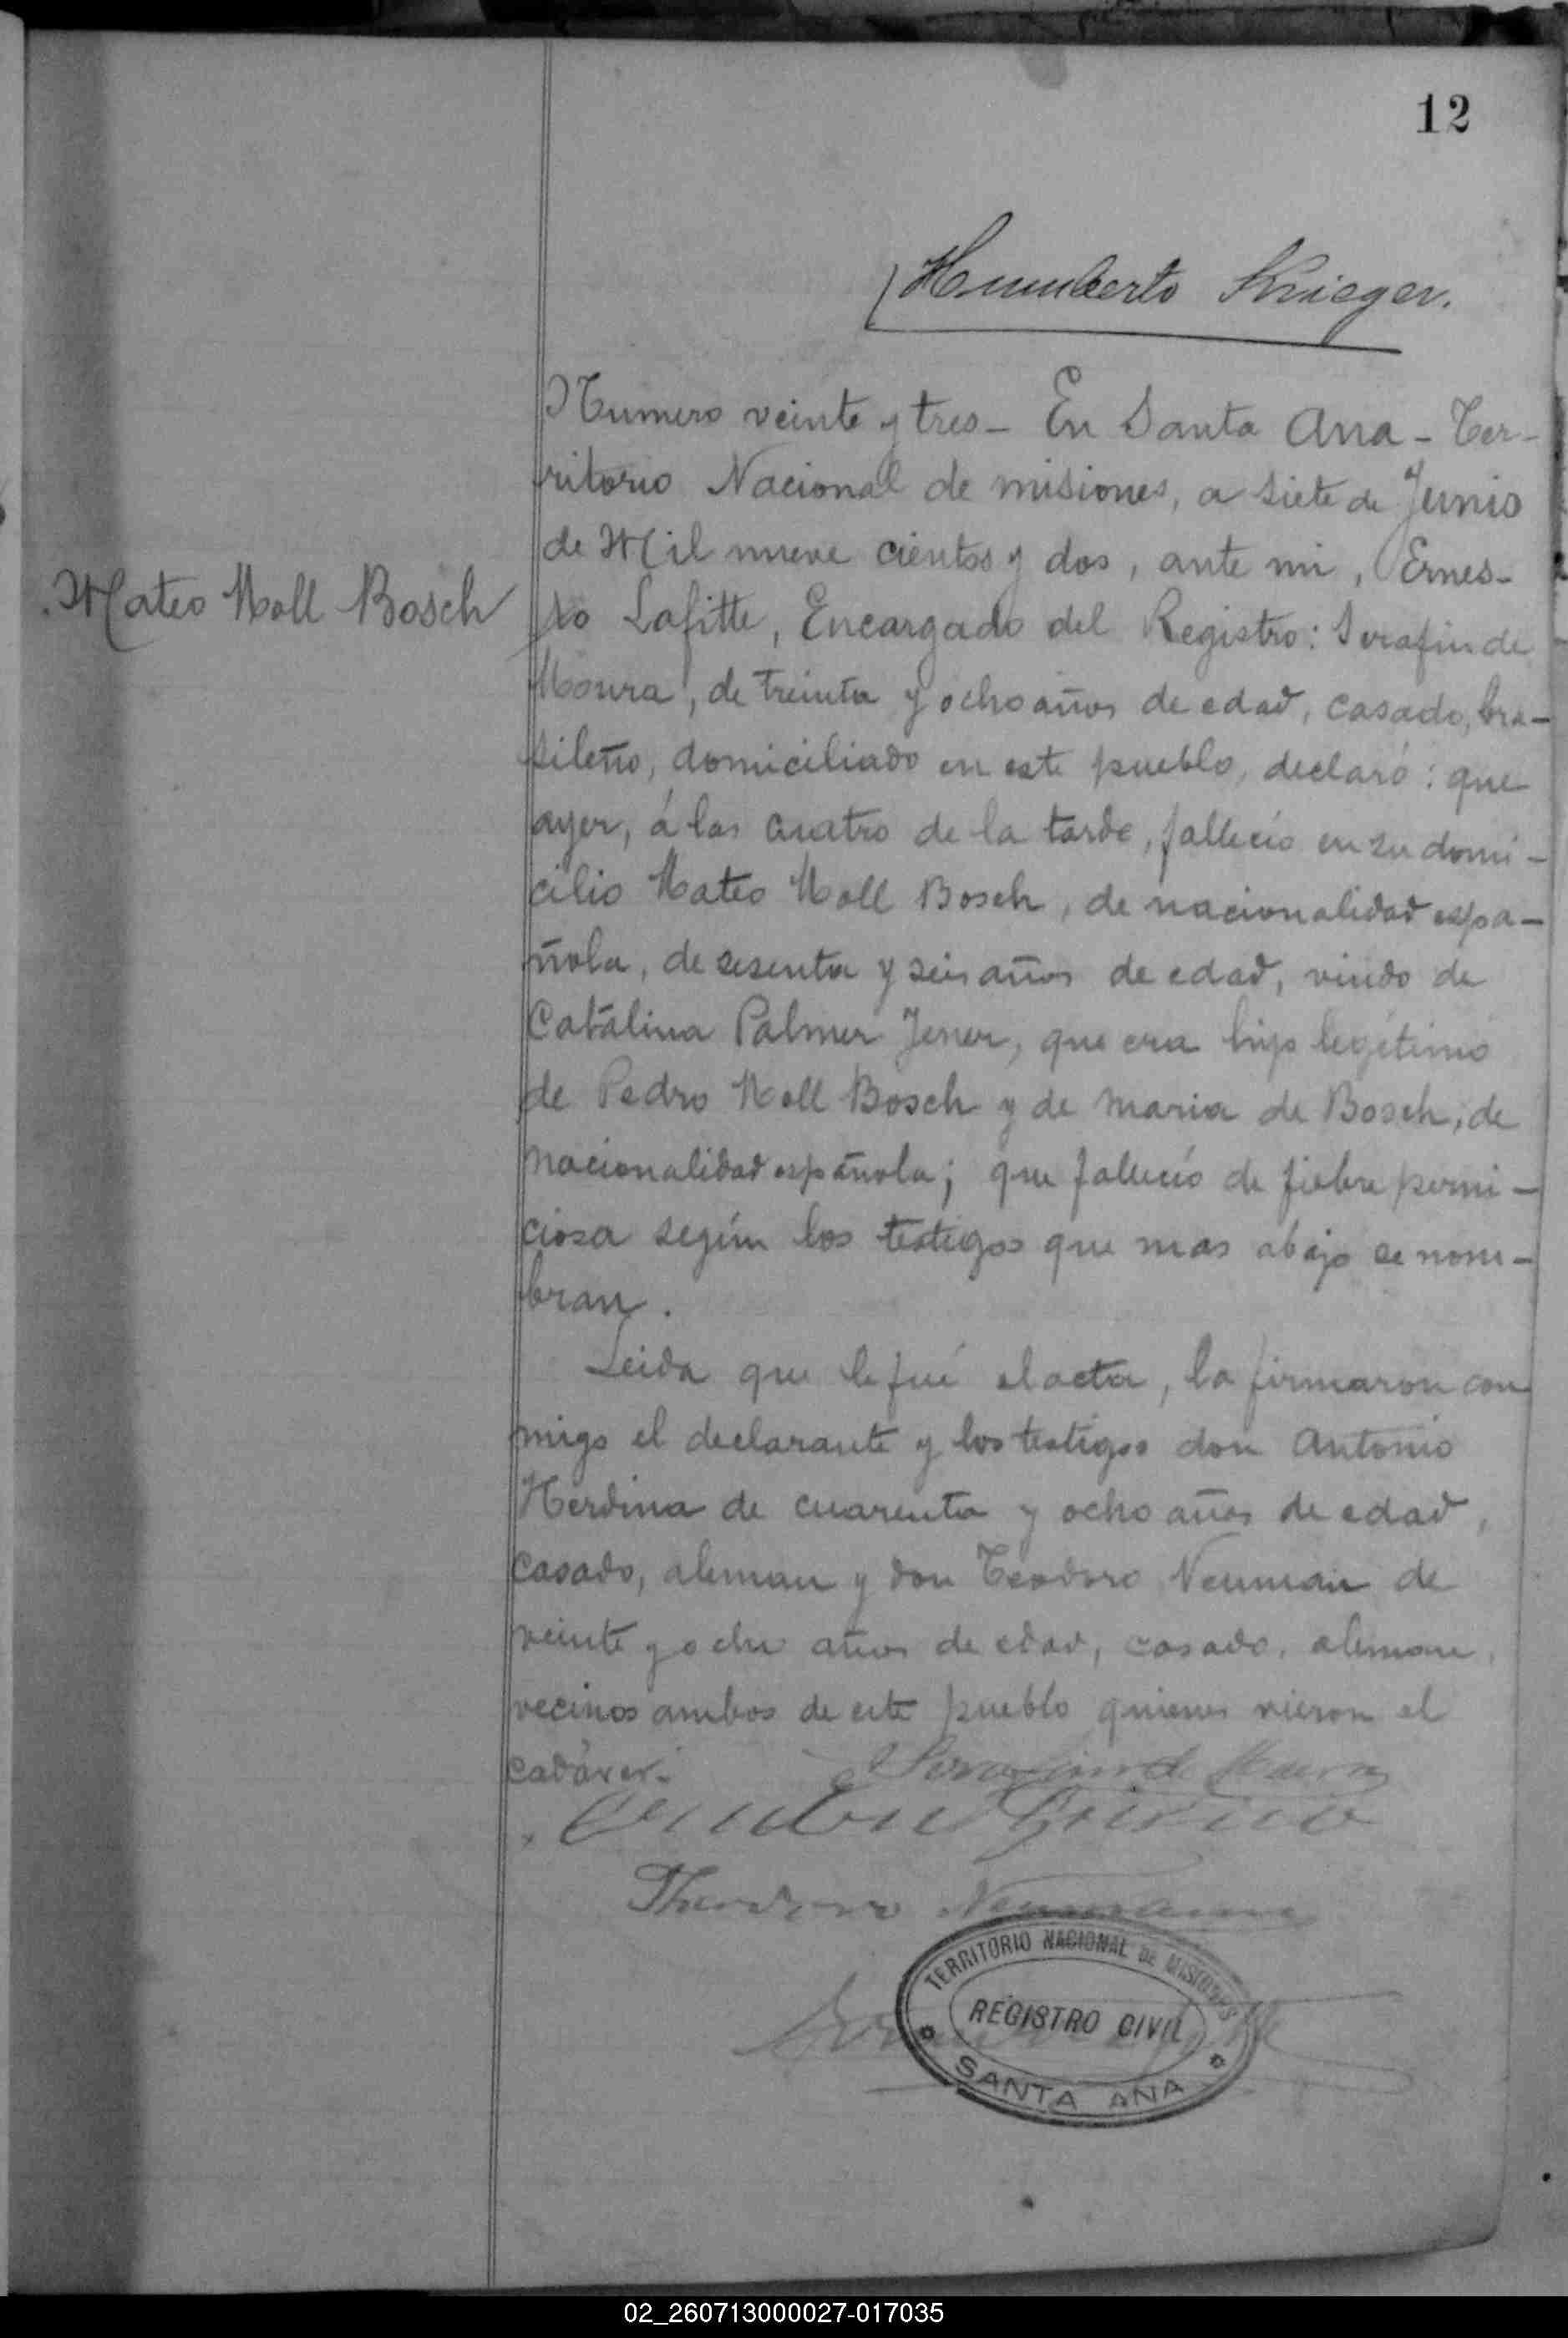 12
Humberto Krieger.
Numero veinte y tres - En Santa Ana - Ter-
ritorio Nacional de misiones, a siete de Junio
de Mil nueve cientos y dos, ante mi, Ernes-
Mateo Moll Bosch
to Lafitte, Encargado del Registro: Serafin de
Moura, de treinta y ocho años de edad, casado, bra-
sileño, domiciliado en este pueblo, declaró: que
ayer, á las cuatro de la tarde, fallecio en su domi-
cilio Mateo Moll Bosch, de nacionalidad espa-
ñola, de sesenta y seis años de edad, viudo de
Catalina Palmer Jener, que era hijo legitimo
de Pedro Moll Bosch y de Maria de Bosch, de
nacionalidad española; que falleció de fiebre perni-
ciosa según los testigos que mas abajo se nom-
bran.
Leida que le fué el acta, la firmaron con
migo el declarante y los testigos don Antonio
Herdina de cuarenta y ocho años de edad,
casado, aleman y don Teodoro Neuman de
veinte y ocho años de edad, casado, aleman,
vecinos ambos de este pueblo quienes vieron el
cadáver.-
Serafim de Moura
Theodoro Neumann
TERRITORIO NACIONAL DE MISIONES
REGISTRO CIVIL
SANTA ANA
02_260713000027-017035